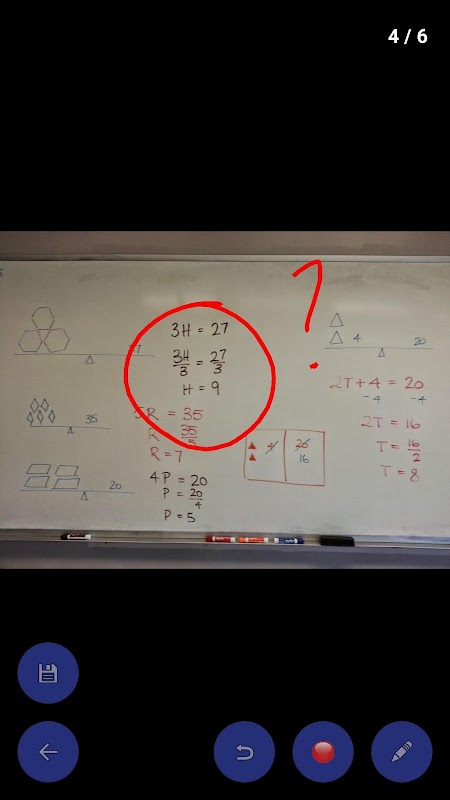 4 / 6
3H = 27
3H/3 = 27/3
H = 9
35
5R = 35
R 35/5
R = 7
20
4P = 20
P = 20/4
P = 5
4 20
2T + 4 = 20
-4 -4
2T = 16
T = 16/2
T = 8
4
16
?